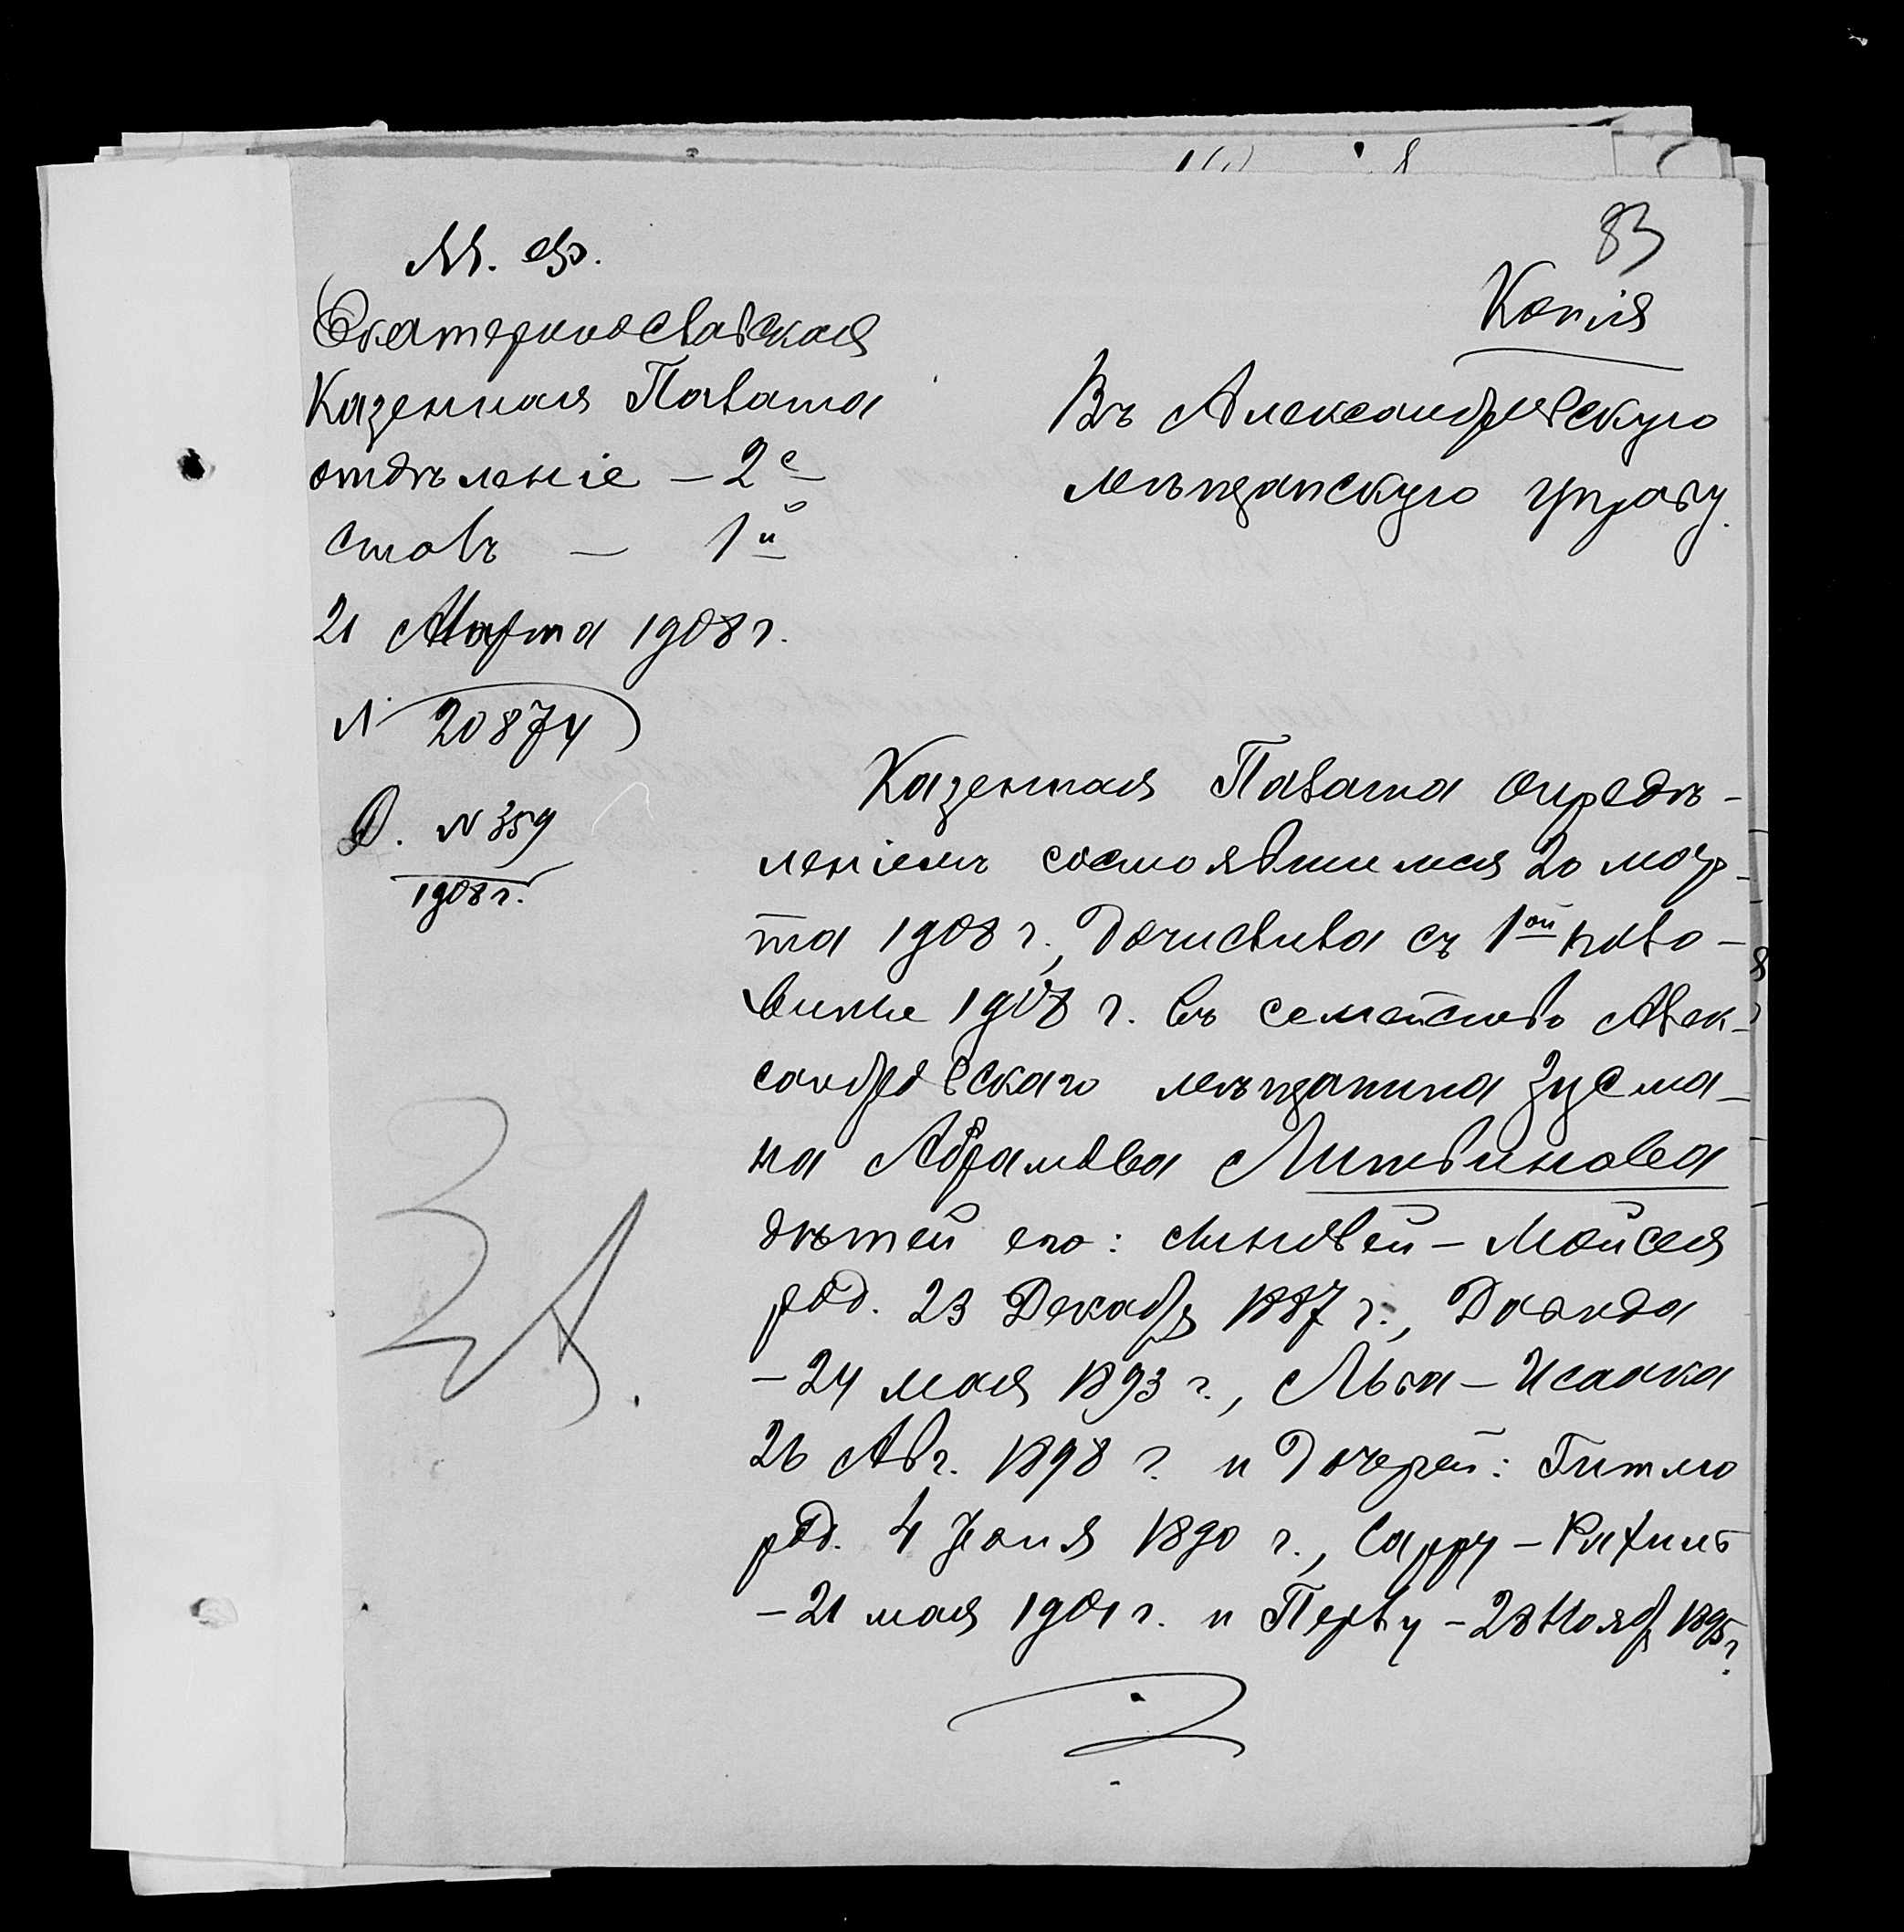 М. Ф.
Екатеринославская
Казенная Палата
отдѣленіе — 2е
столъ — 1й
21 Марта 1908 г.
№ 20874
Д. № 359
1908 г.
83
Копія
Въ Александровскую
мѣщанскую управу.
Казенная Палата опредѣ-
леніемъ состоявшимся 20 мар-
та 1908 г., дочислила съ 1ой поло-
вины 1908 г. въ семейство Алек-
сандровскаго мѣщанина Зусма-
на Абрамова Литвинова
дѣтей его: -Мойсея
род. 23 Декабр 1887 г., Давида
- 24 мая 1893 г., Льва-Исаака
26 Авг. 1898 г. и дочерей: Гитлю
род. 4 Іюня 1890 г., Сарру-Рихиль
- 21 мая 1901 г. и Перлу - 23 Нояб 1895 г.